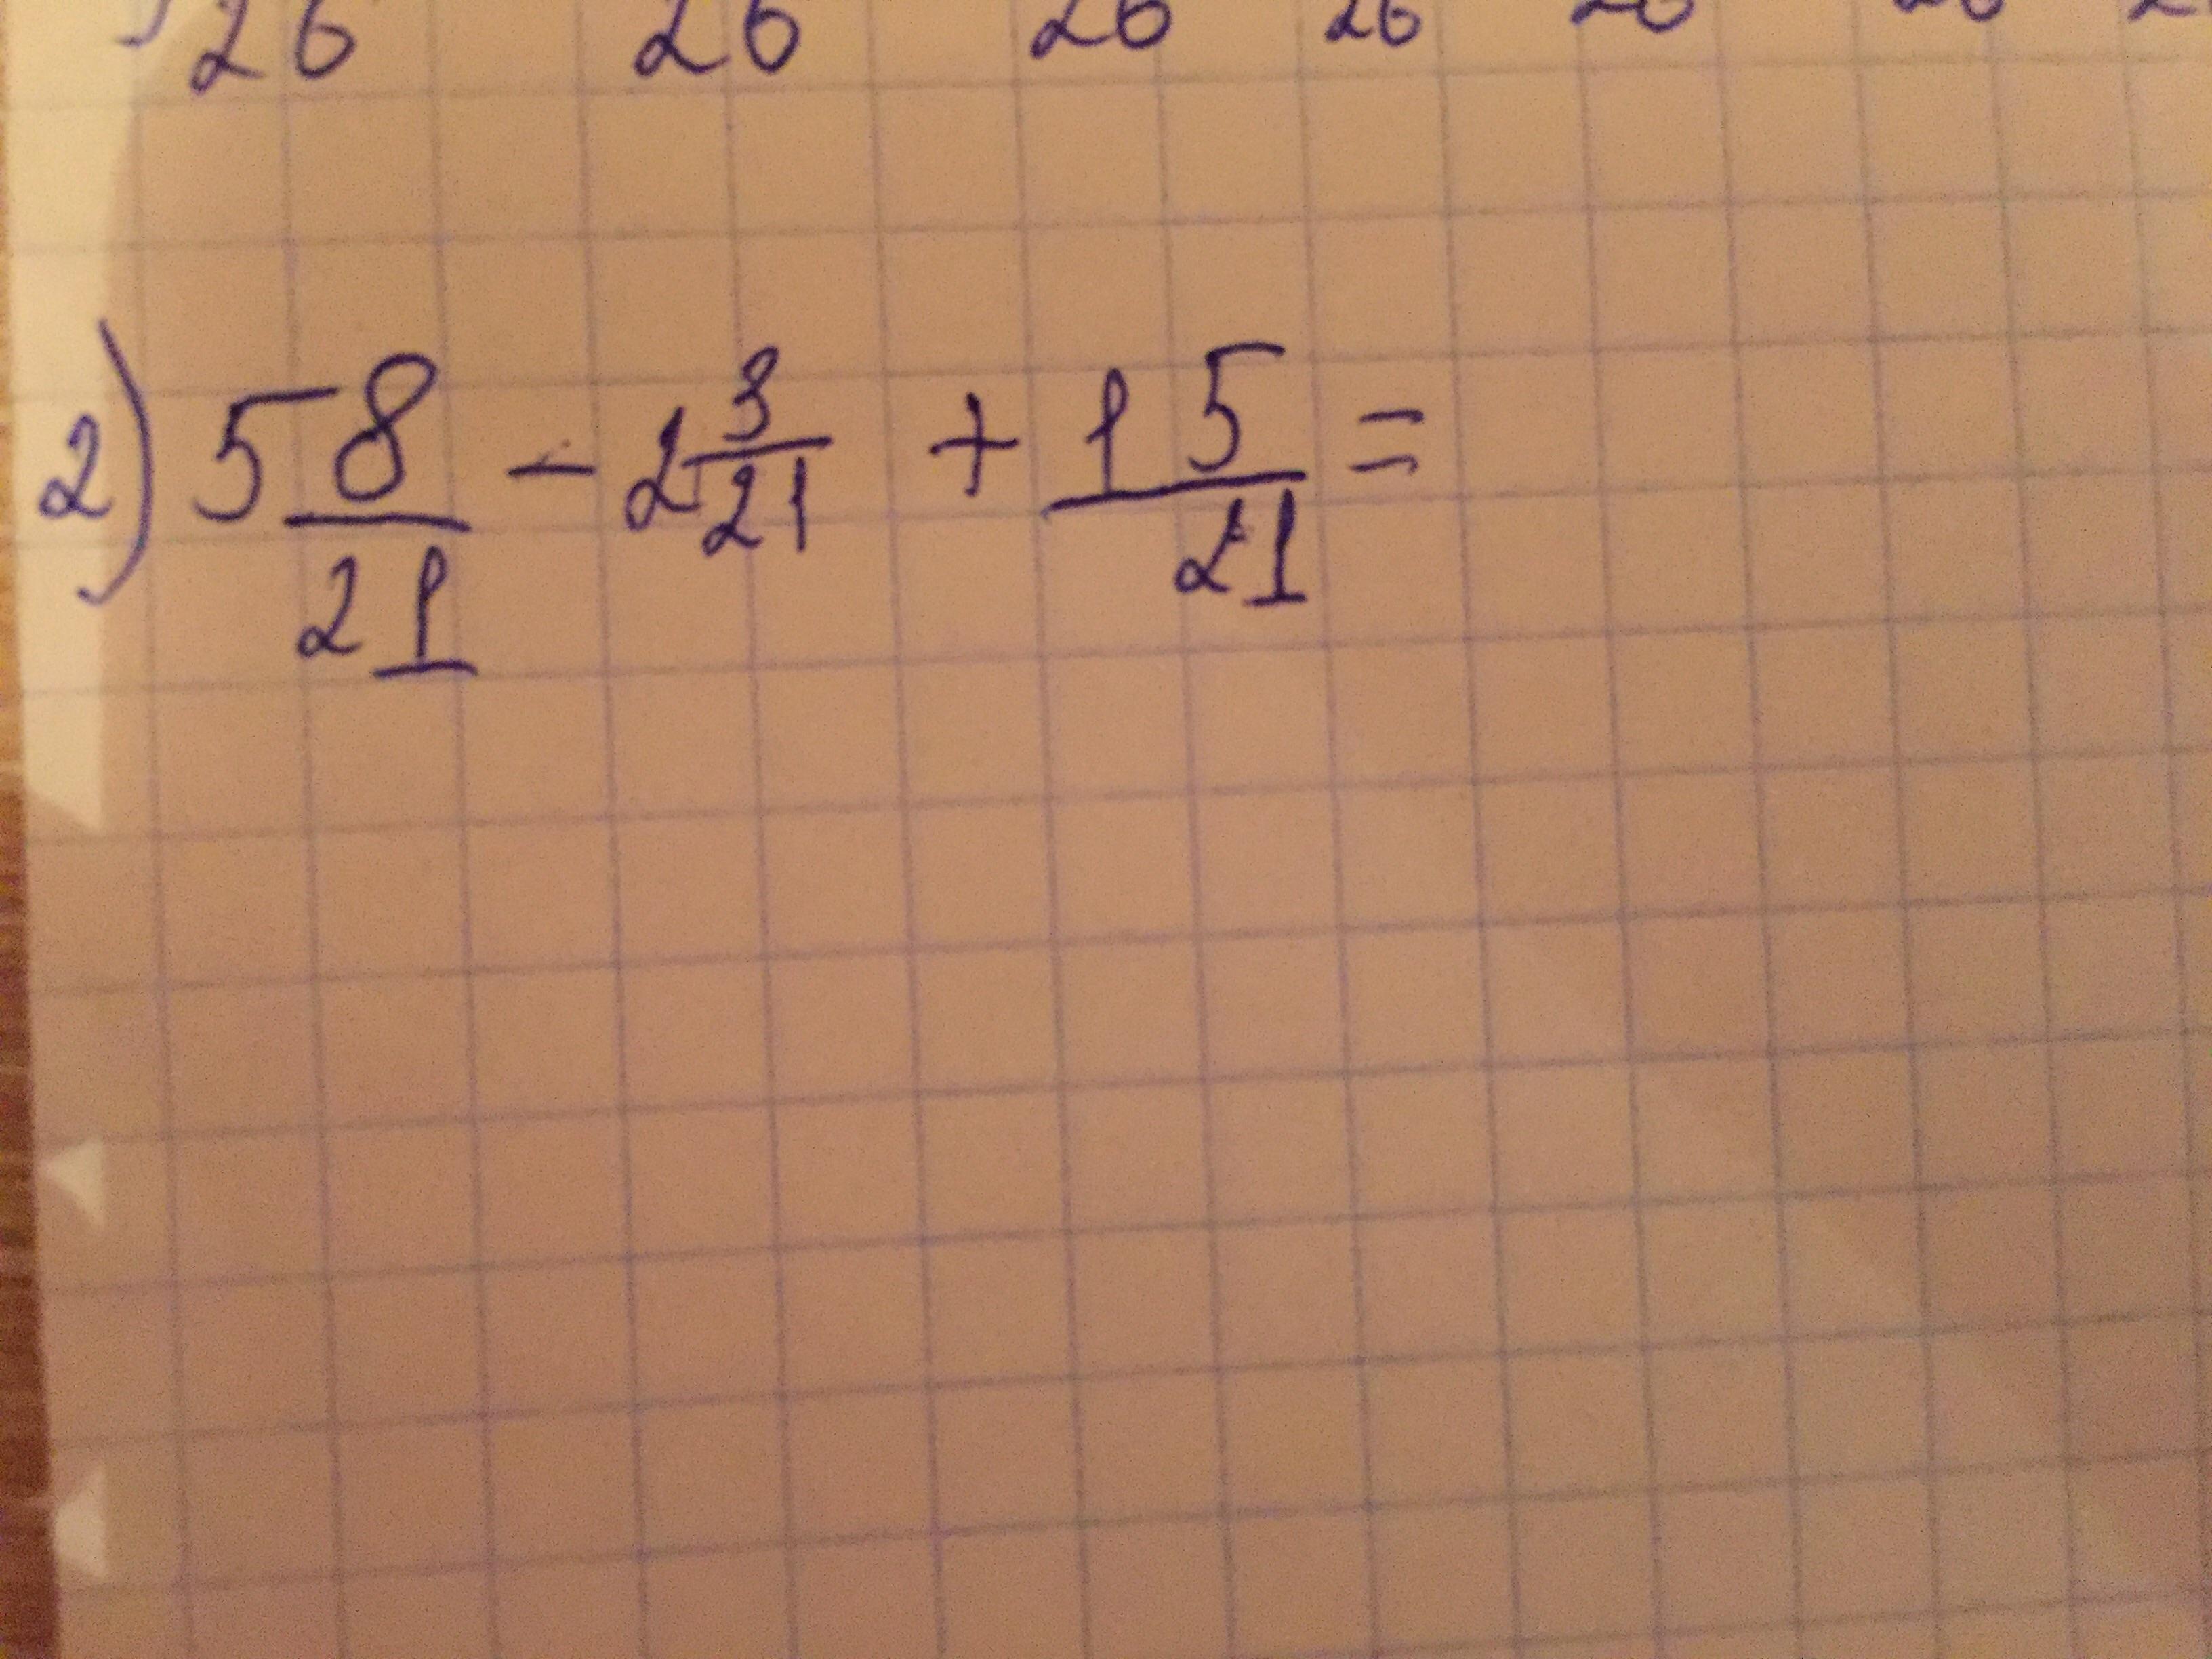 26 26 26 26 26 26
2) 5 8/21 - 2 3/21 + 1 5/21 =